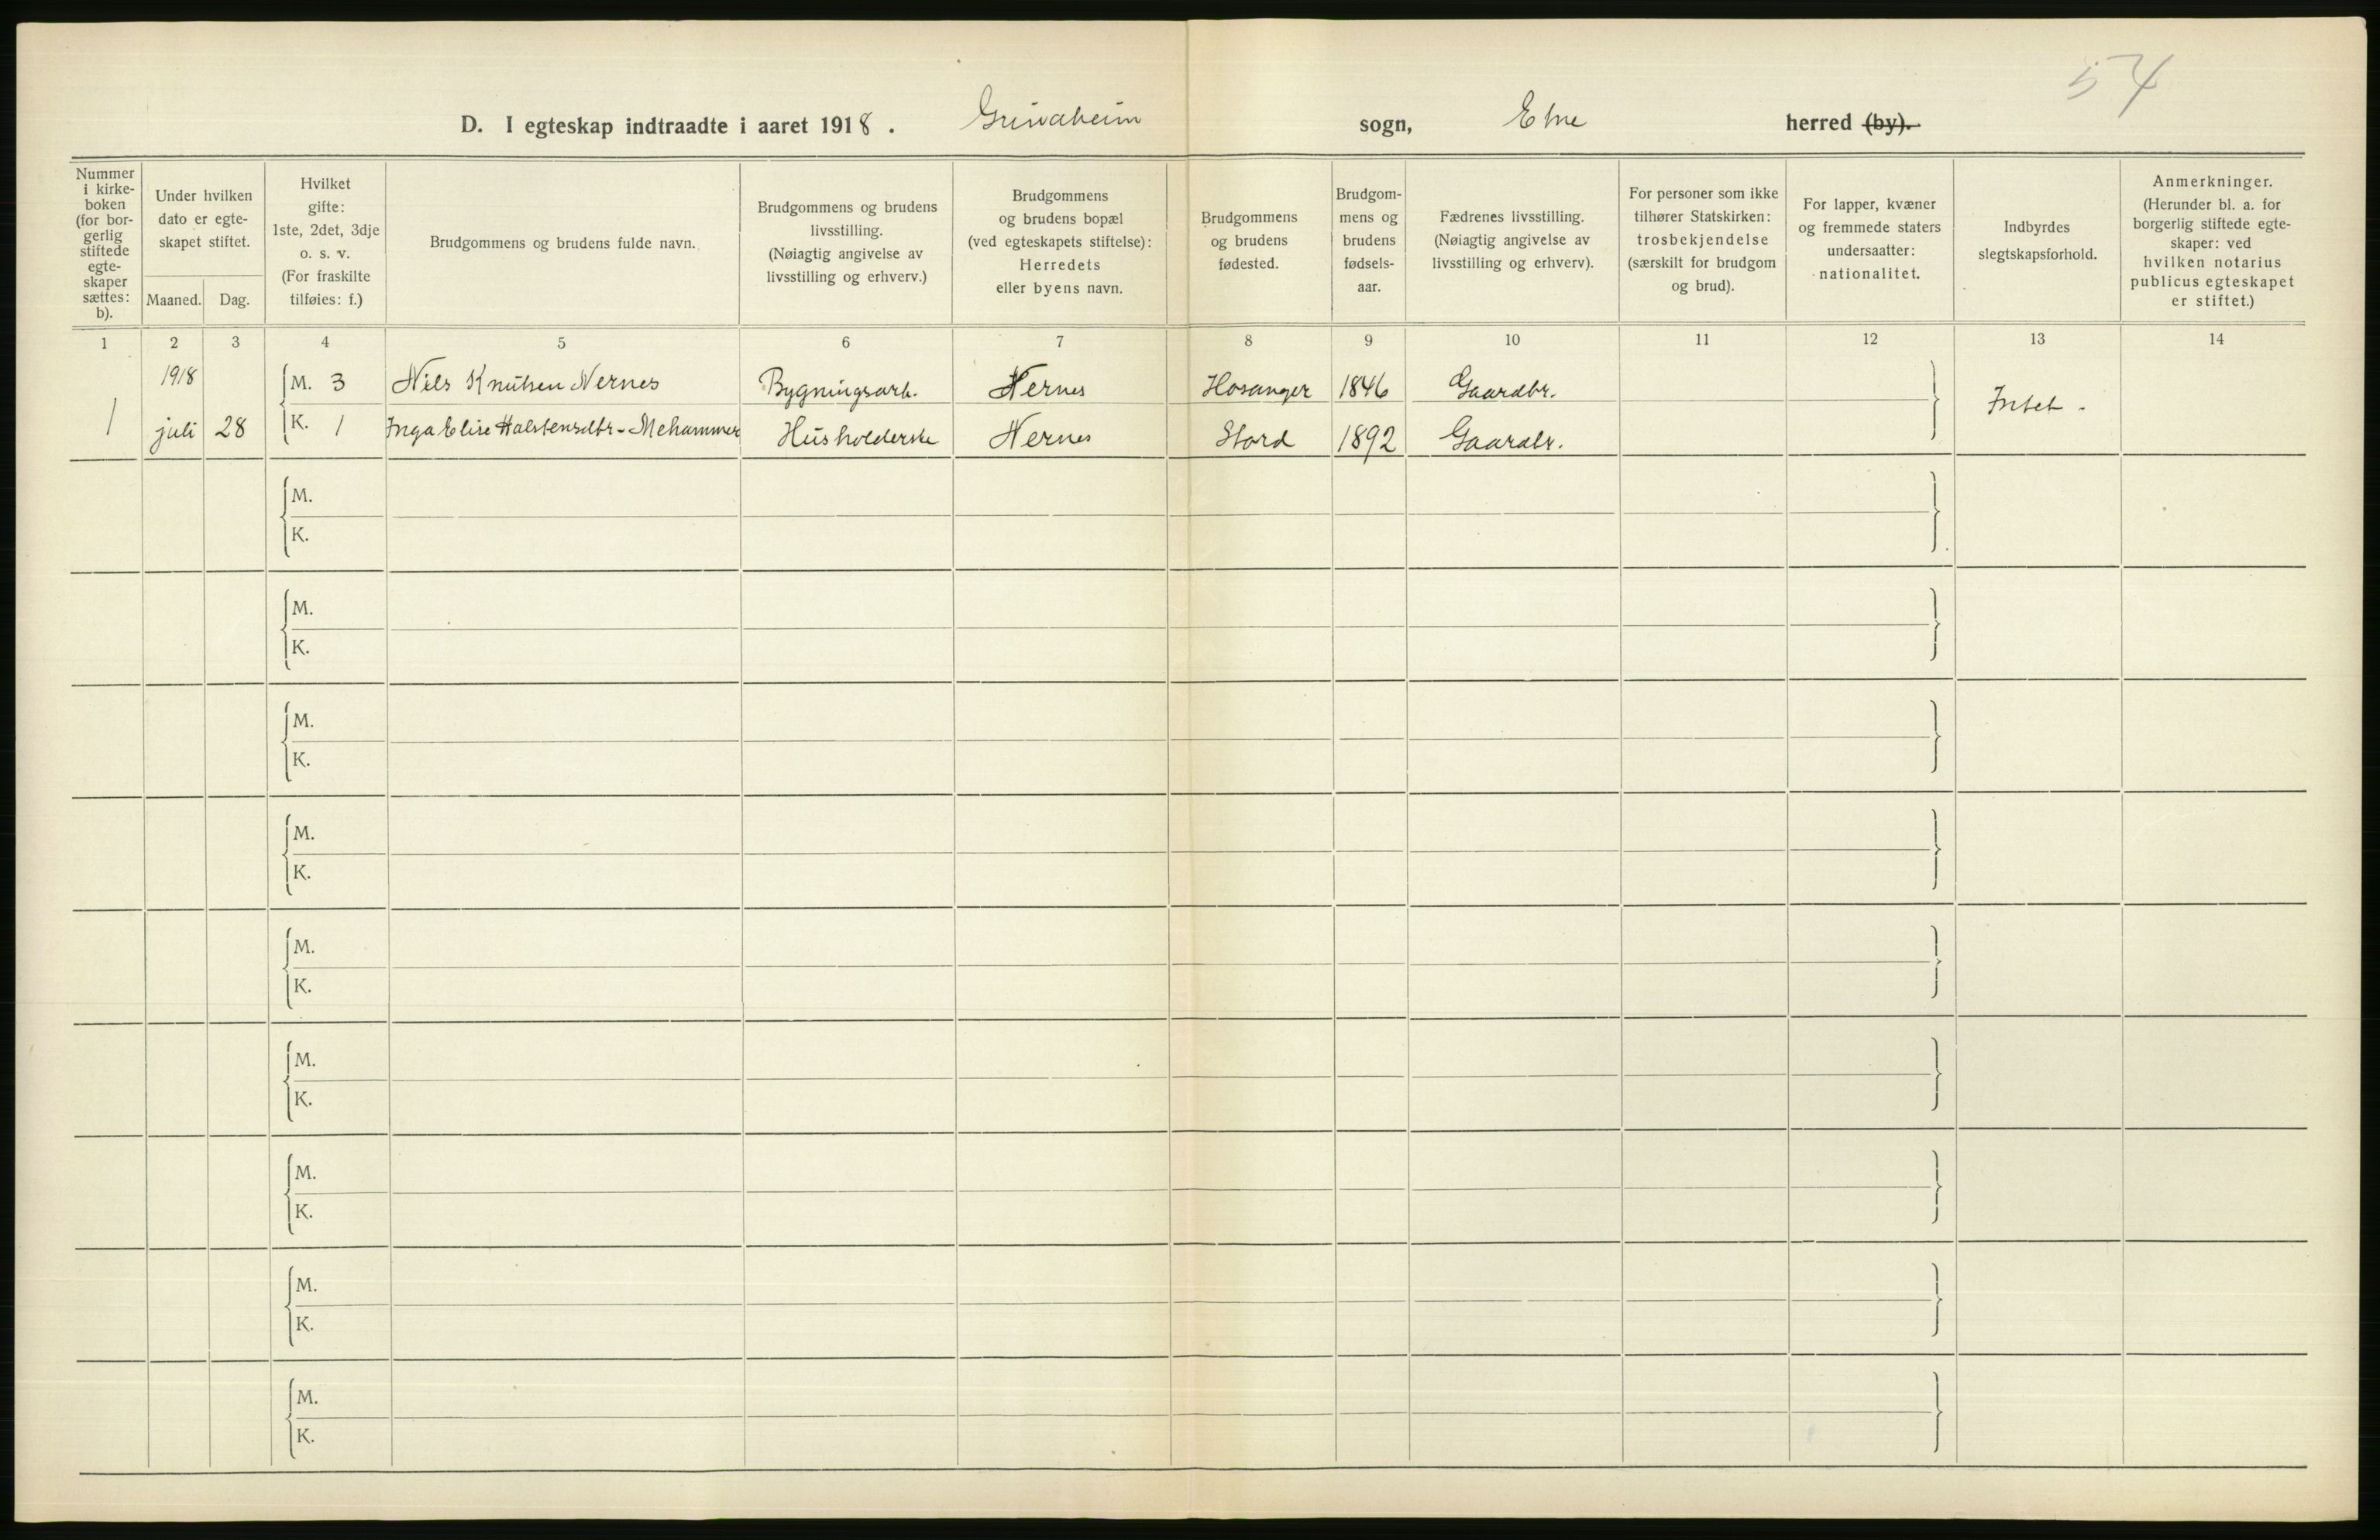 54
D. I egteskap indtraadte i aaret 1918. Grindheim sogn, Etne herred (by).
Nummer i kirke-boken (for bor-gerlig stiftede egte-skaper sættes: b).
Under hvilken dato er egte-skapet stiftet.
Maaned. Dag.
Hvilket gifte: 1ste, 2det, 3dje o. s. v. (For fraskilte tilføies: f.)
Brudgommens og brudens fulde navn.
Brudgommens og brudens livsstilling. (Nøiagtig angivelse av livsstilling og erhverv.)
Brudgommens og brudens bopæl (ved egteskapets stiftelse): Herredets eller byens navn.
Brudgommens og brudens fødested.
Brudgom-mens og brudens fødsels-aar.
Fædrenes livsstilling. (Nøiagtig angivelse av livsstilling og erhverv).
For personer som ikke tilhører Statskirken: trosbekjendelse (særskilt for brudgom og brud).
For lapper, kvæner og fremmede staters undersaatter: nationalitet.
Indbyrdes slegtskapsforhold.
Anmerkninger. (Herunder bl. a. for borgerlig stiftede egte-skaper: ved hvilken notarius publicus egteskapet er stiftet.)
1 2 3 4 5 6 7 8 9 10 11 12 13 14
1918 M. 3 Nils Knutsen Nernes Bygningsarb. Nernes Hosanger 1846 Gaardbr. Intet -
1 juli 28 K. 1 Inga Elise Halstensdtr - Mehammer Husholderske Nernes Stord 1892 Gaardbr.
M.
K.
M.
K.
M.
K.
M.
K.
M.
K.
M.
K.
M.
K.
M.
K.
M.
K.